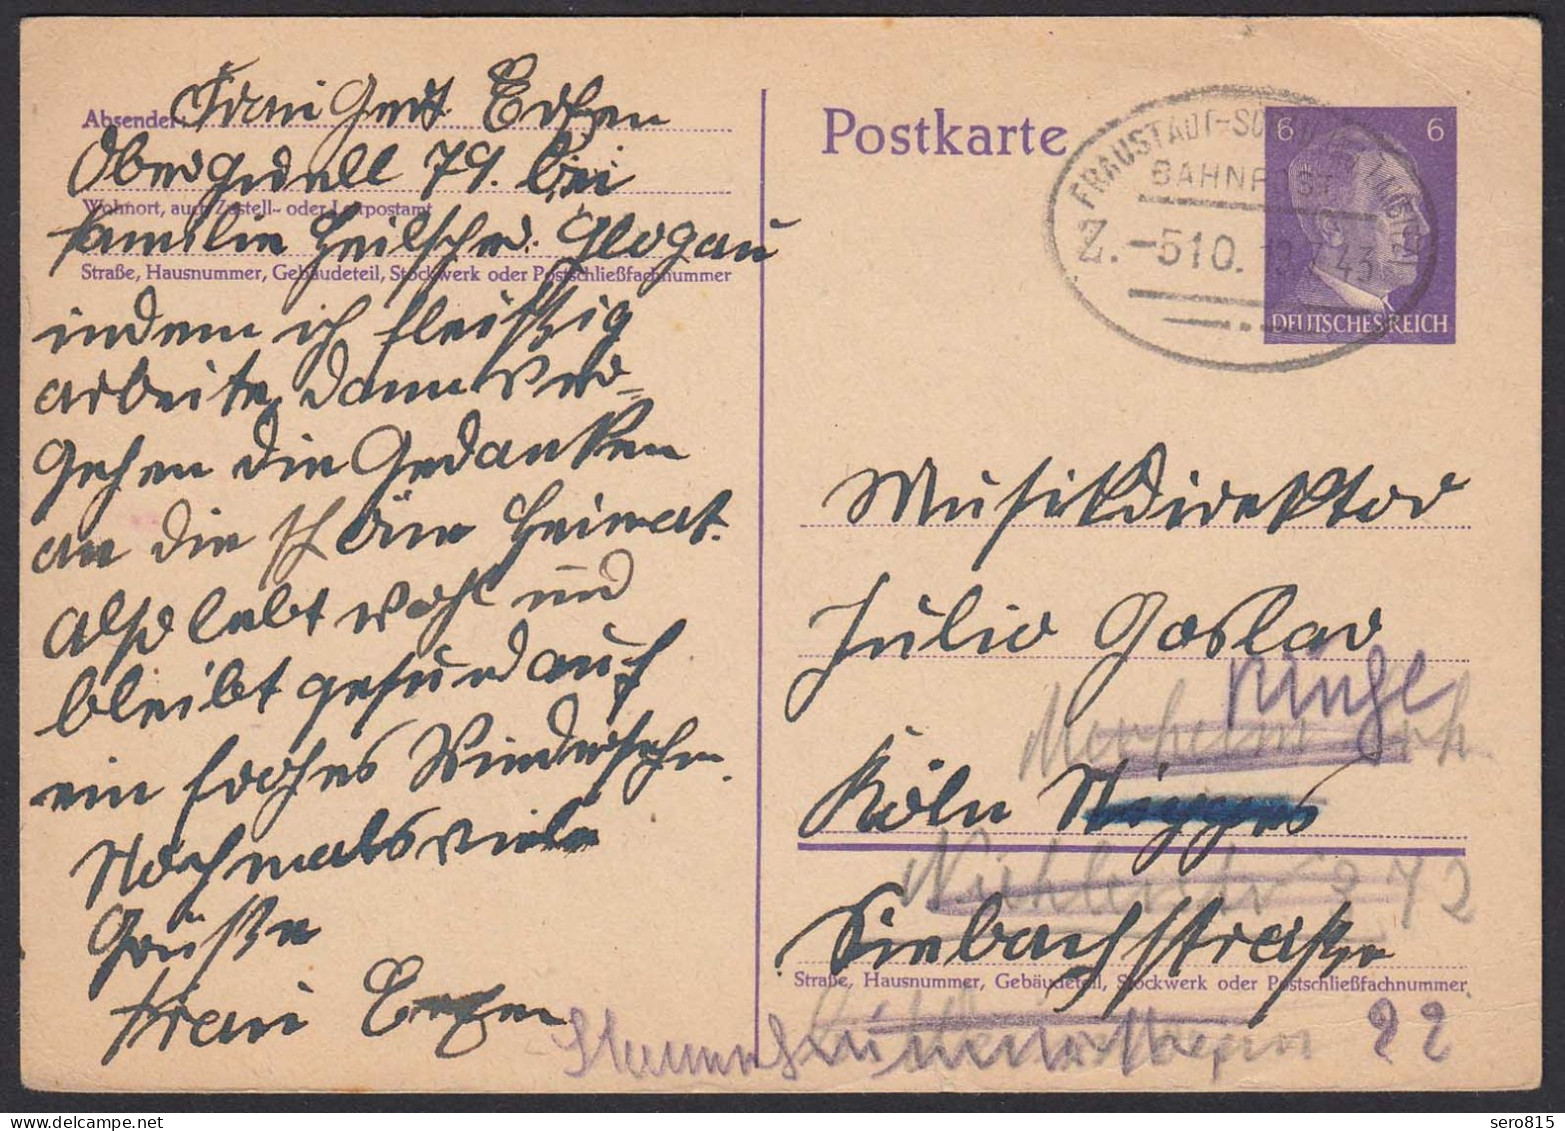 Absender:
Frau Gert. Erfen
Oberquell 79. bei
Wohnort, auch Zustell- oder Leitpostamt
Familie Heilscher. Glogau
Straße, Hausnummer, Gebäudeteil, Stockwerk oder Postschließfachnummer
indem ich fleißig
arbeite, dann ver-
gehen die Gedanken
an die schöne Heimat.
Also lebt wohl und
bleibt gesund auf
ein frohes Wiedersehn.
Nochmals viele
Grüße
Frau Erfen
Postkarte
6 6
DEUTSCHES REICH
FRAUSTADT-
BAHNPOST
Z. 510. 43
Musikdirektor
Julio Goslar
Köln Nippes
Siebachstraße
Straße, Hausnummer, Gebäudeteil, Stockwerk oder Postschließfachnummer
22
sero815